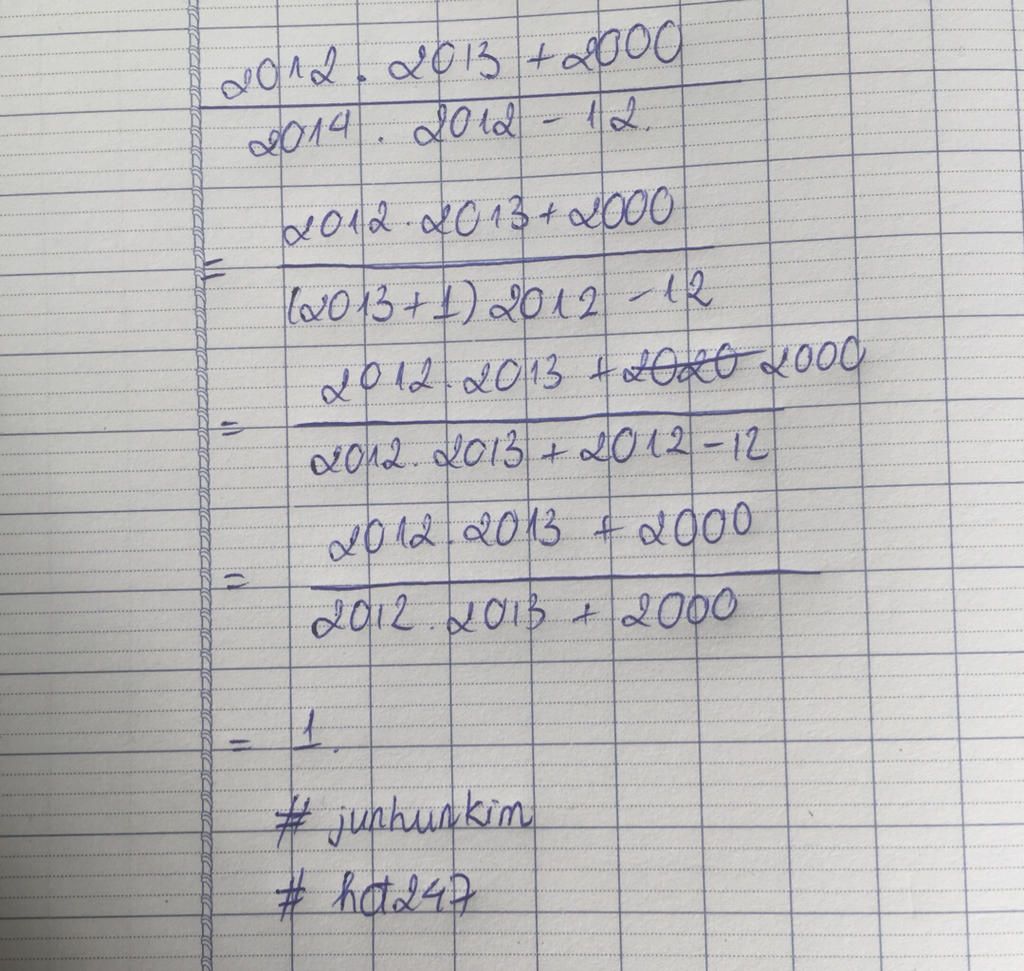 2012 . 2013 + 2000
2014 . 2012 - 12
2012 . 2013 + 2000
=
(2013 + 1) 2012 - 12
2012 . 2013 + 2020 2000
=
2012 . 2013 + 2012 - 12
2012 . 2013 + 2000
=
2012 . 2013 + 2000
= 1.
# junhunkim
# hd247